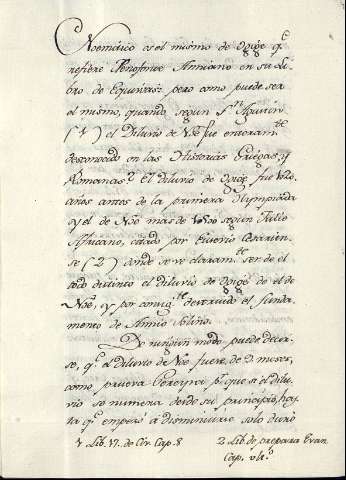 Noemático es el mismo de Ogige q.e
refiere Xenofonte Anniano en su Li-
bro de Equivocis: pero como puede ser
el mismo, quando, segun S.n Agustin
(1) el Diluvio de Noe fue enteram.te
desconocido en las Historias Griegas, y
Romanas? El diluvio de Ogige fue
años antes de la primera Olympiada
y el de Noe mas de segun Julio
Africano, citado por Eusevio Cesarien-
se (2) donde se ve claram.te ser de el
todo distinto el diluvio de Ogige de el de
Noe, y por consig.te destruido el funda-
mento de Annio
De ningun modo puede decir-
se, q.e el diluvio de Noe fuere, de 9 meses,
como prueva Pereyra p.r que si el dilu-
vio se numera desde su principio, has-
ta q.e empezó a disminuirse solo duró
1 Lib. 17. de Civ. Cap. 8
2 Lib. de prepara Evan
Cap.